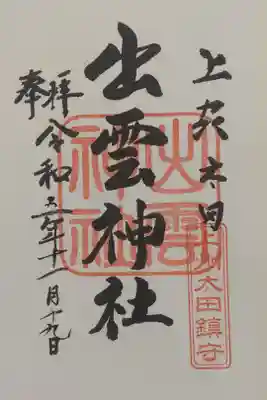 上荻太田
出雲神社
奉拝
令和五年十一月十九日
出雲
神社
太田鎮守